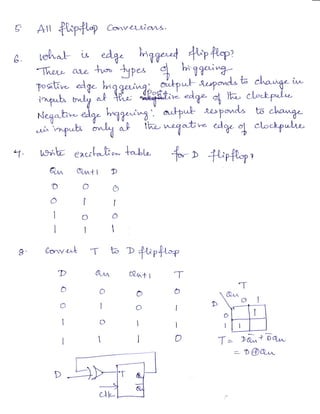 5 All flipflop Conversions.
6. What is edge triggered flipflop?
There are two types of triggering
positive edge triggering: output responds to change in
inputs only at the positive edge of the clockpulse
Negative edge triggering: output responds to change
in inputs only at the negative edge of clockpulse
7. Write excitation table for D flipflop?
Qn Qn+1 D
0 0 0
0 1 1
1 0 0
1 1 1
8. Convert T to D flipflop
D Qn Qn+1 T
0 0 0 0
0 1 0 1
1 0 1 1
1 1 1 0
T
Qn
D 0 1
0 1
1 1
T = D̅Qn + DQ̅n
= D⊕Qn
D T Q
Clk Q̅